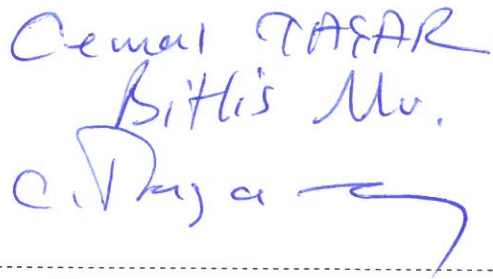 Cemal TAŞAR
Bitlis Mv.
C. Taşar